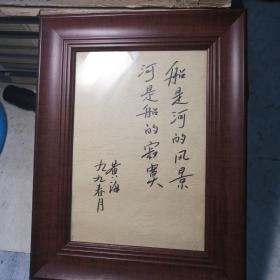 船是河的风景
河是船的寂寞
黄海
九九春月